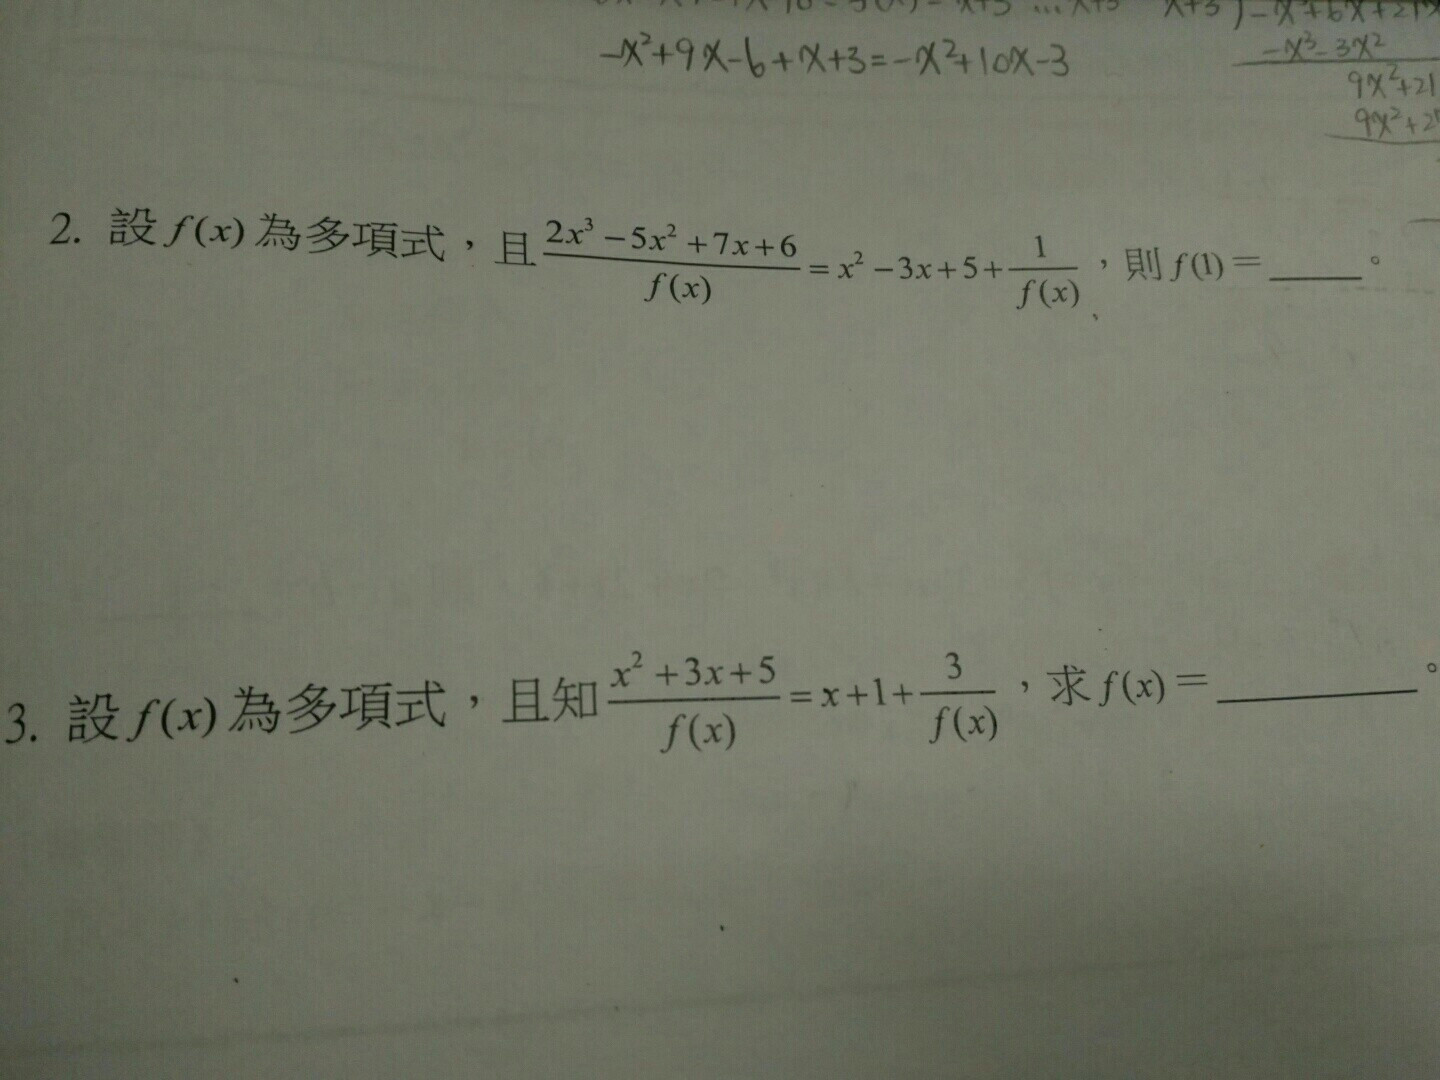 -x²+9x-6+x+3=-x²+10x-3
-x³-3x²
9x²+21
9x²+2
2. 設 f(x) 為多項式，且 \frac{2x³-5x²+7x+6}{f(x)} = x²-3x+5+\frac{1}{f(x)}，則 f(1)=_____。
3. 設 f(x) 為多項式，且知 \frac{x²+3x+5}{f(x)} = x+1+\frac{3}{f(x)}，求 f(x)=_________。